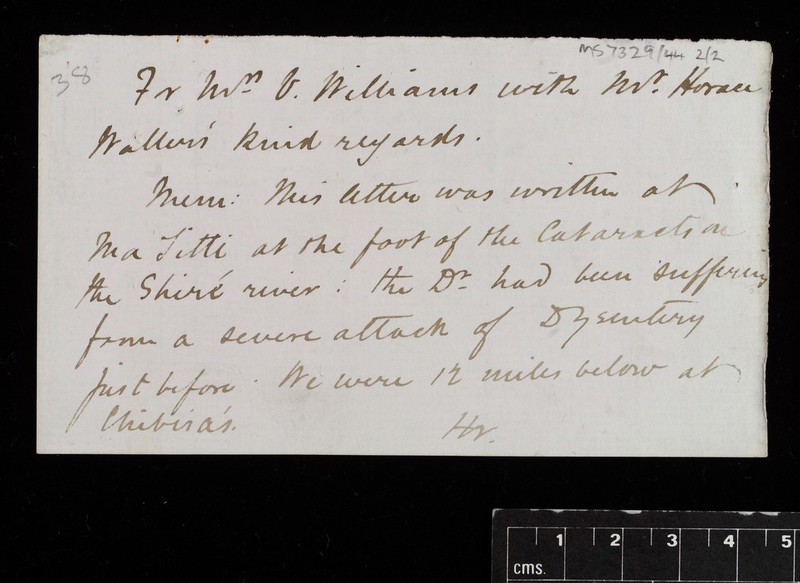 MS7329/44 2/2
38
Fr Mrs V. Williams with Mr. Horace
Waller's kind regards.
Mem: This letter was written at
Ma Titti at the foot of the Cataracts on
the Shiré river: the Dr had been suffering
from a severe attack of Dysentery
just before. We were 12 miles below at
Chibisa's.
HW.
1 2 3 4 5
cms.